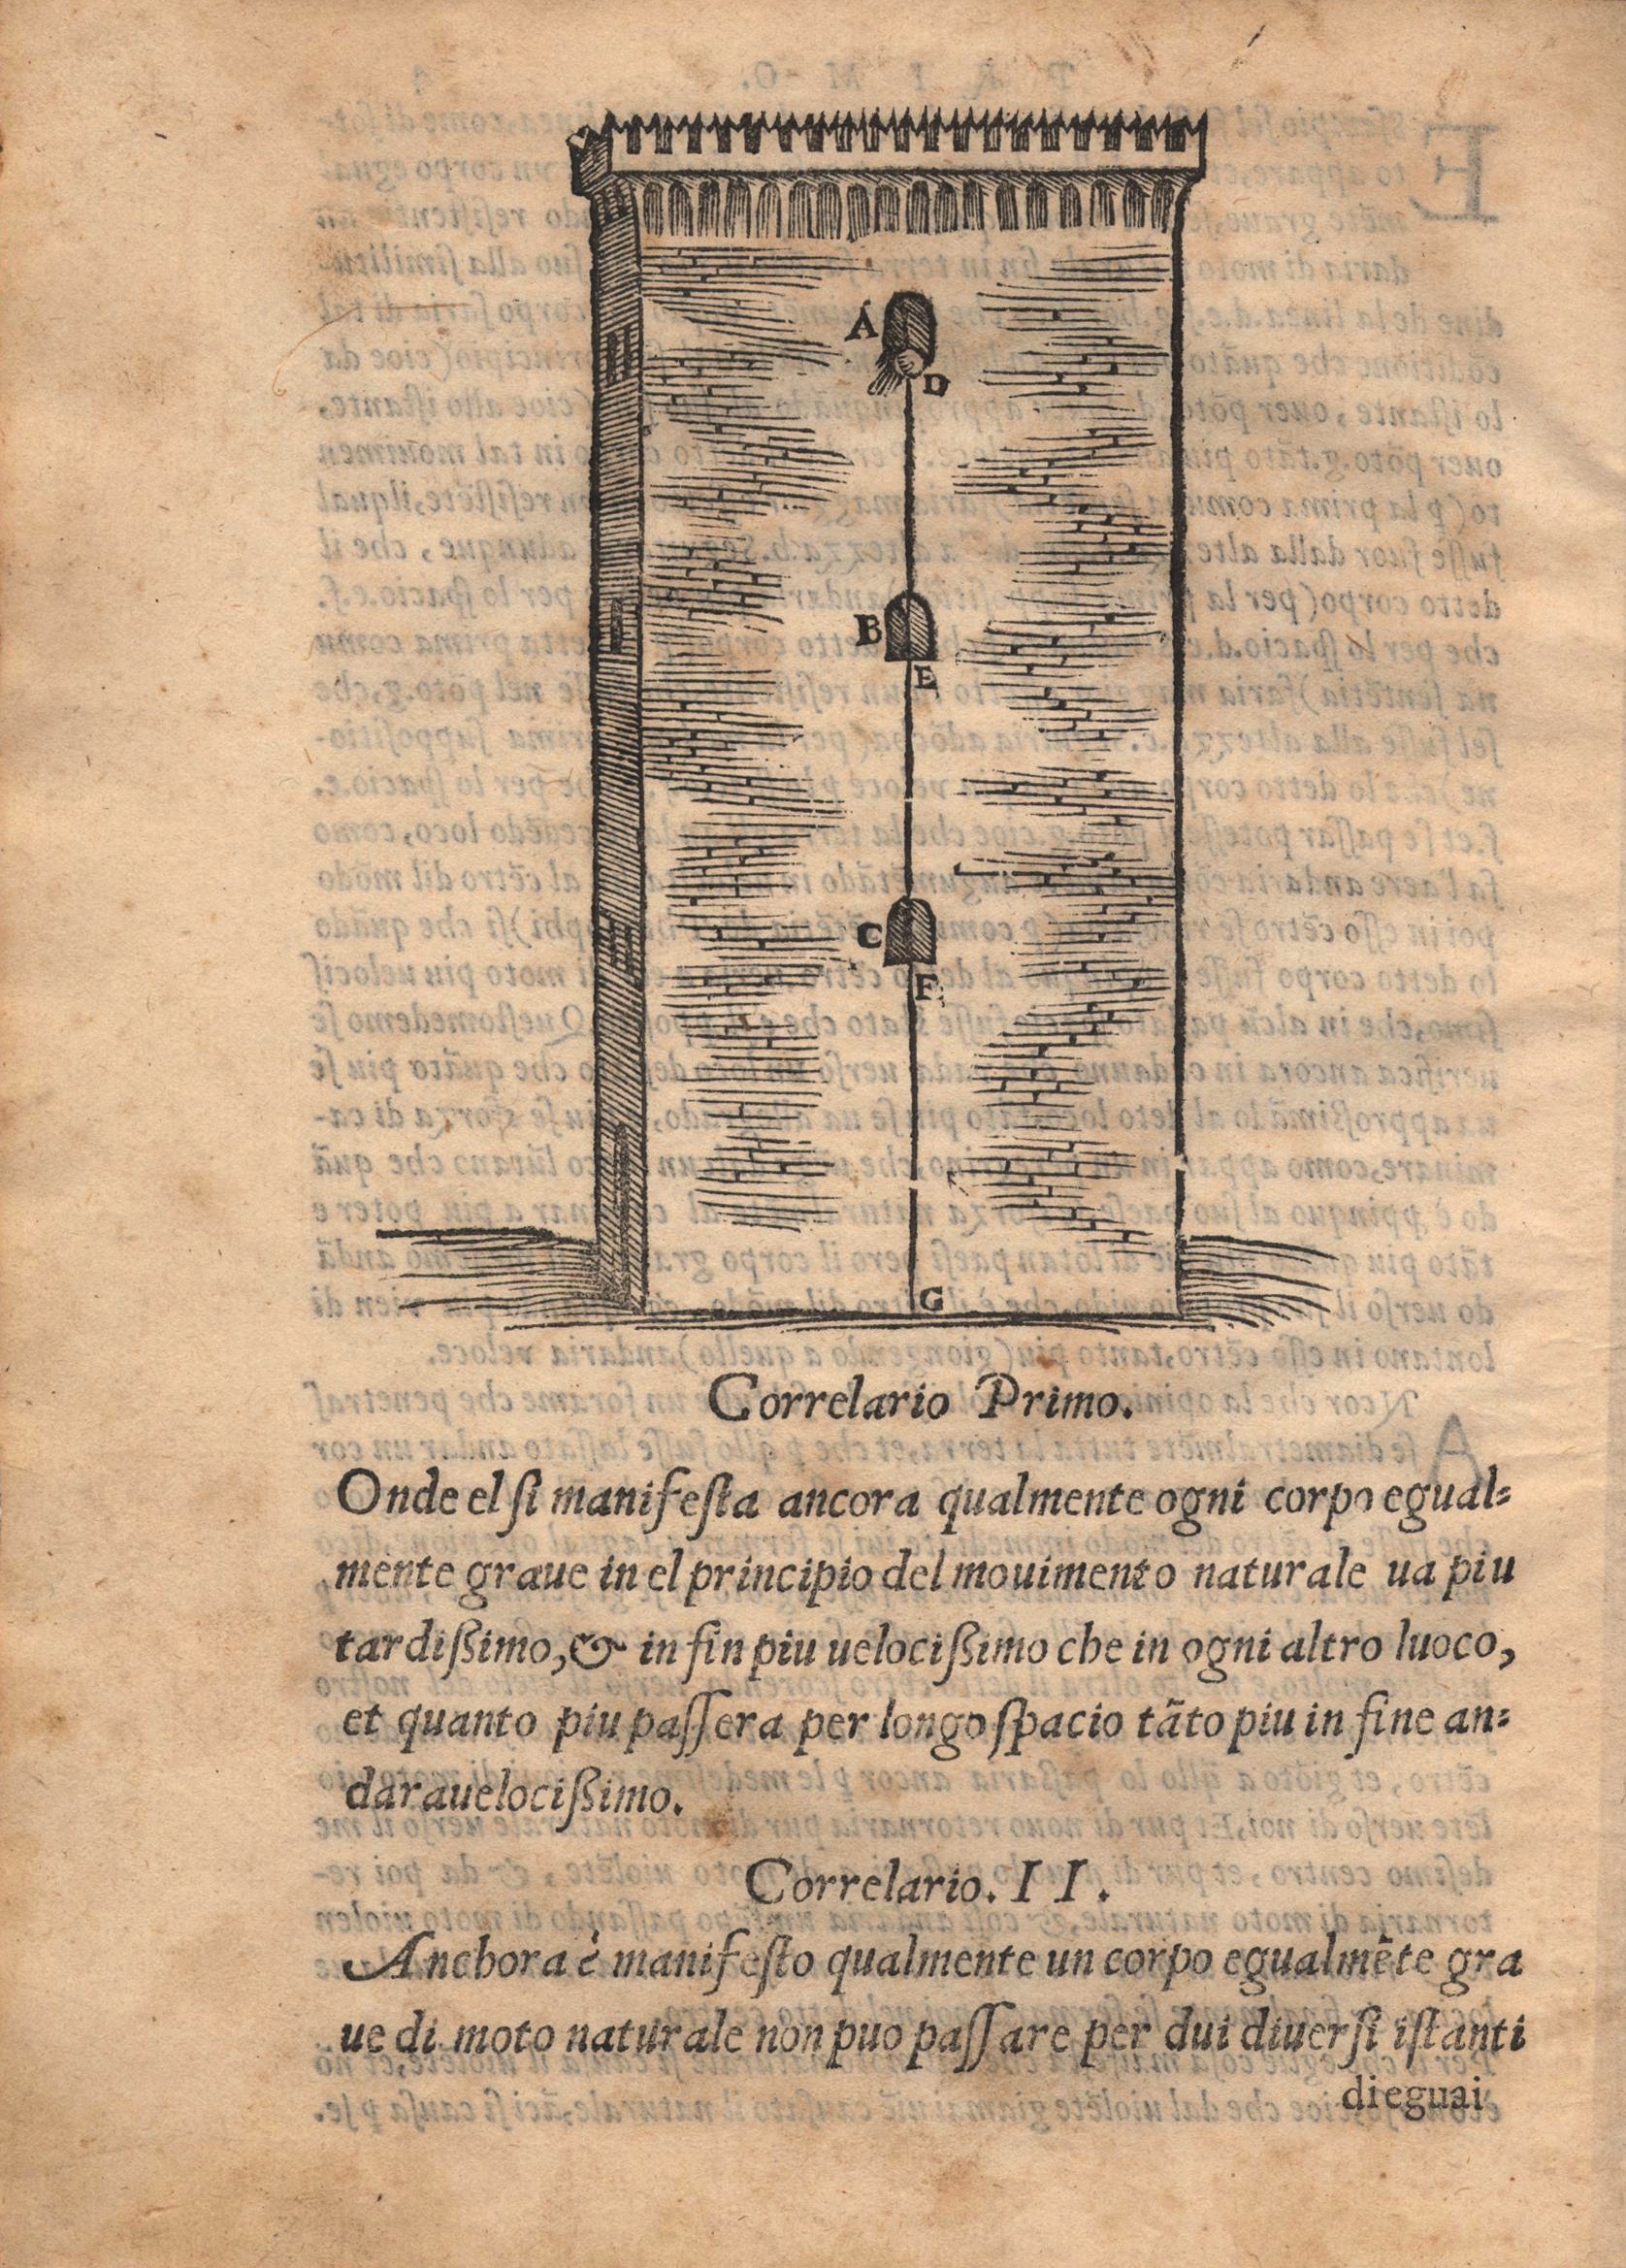 A
D
B
E
C
F
G
Correlario Primo.
Onde el ſi manifeſta ancora qualmente ogni corpo egual=
mente graue in el principio del mouimento naturale ua piu
tardiſſimo, & in fin piu uelociſſimo che in ogni altro luoco,
et quanto piu paſſera per longo ſpacio tāto piu in fine an=
dara uelociſſimo.
Correlario. I I .
Anchora è manifeſto qualmente un corpo egualmēte gra
ue di moto naturale non puo paſſare per dui diuerſi iſtanti
di eguai